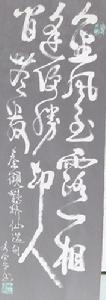 金風玉露一相
逢便勝却人
間無數 秦觀鵲橋仙詞句